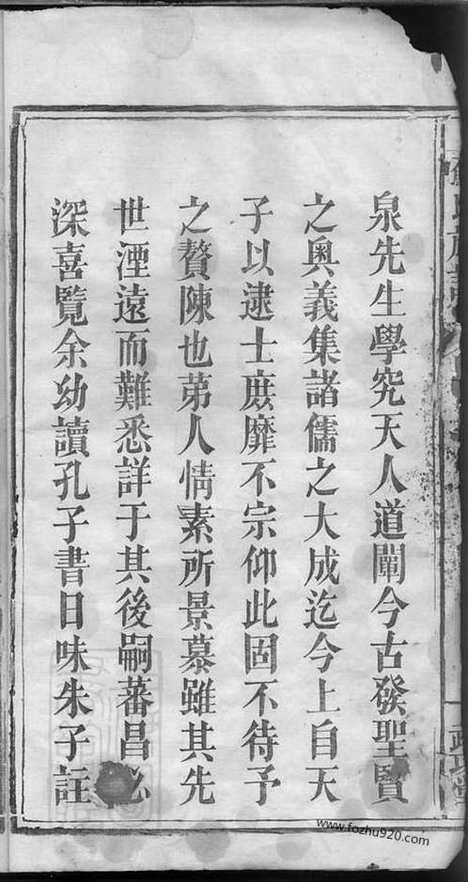 泉先生學究天人道闡今古發聖賢
之奧義集諸儒之大成迄今上自天
子以逮士庶靡不宗仰此固不待予
之贅陳也苐人情素所景慕雖其先
世湮遠而難悉詳于其後嗣蕃昌必
深喜覽余幼讀孔子書日味朱子註
www.fozhu920.com